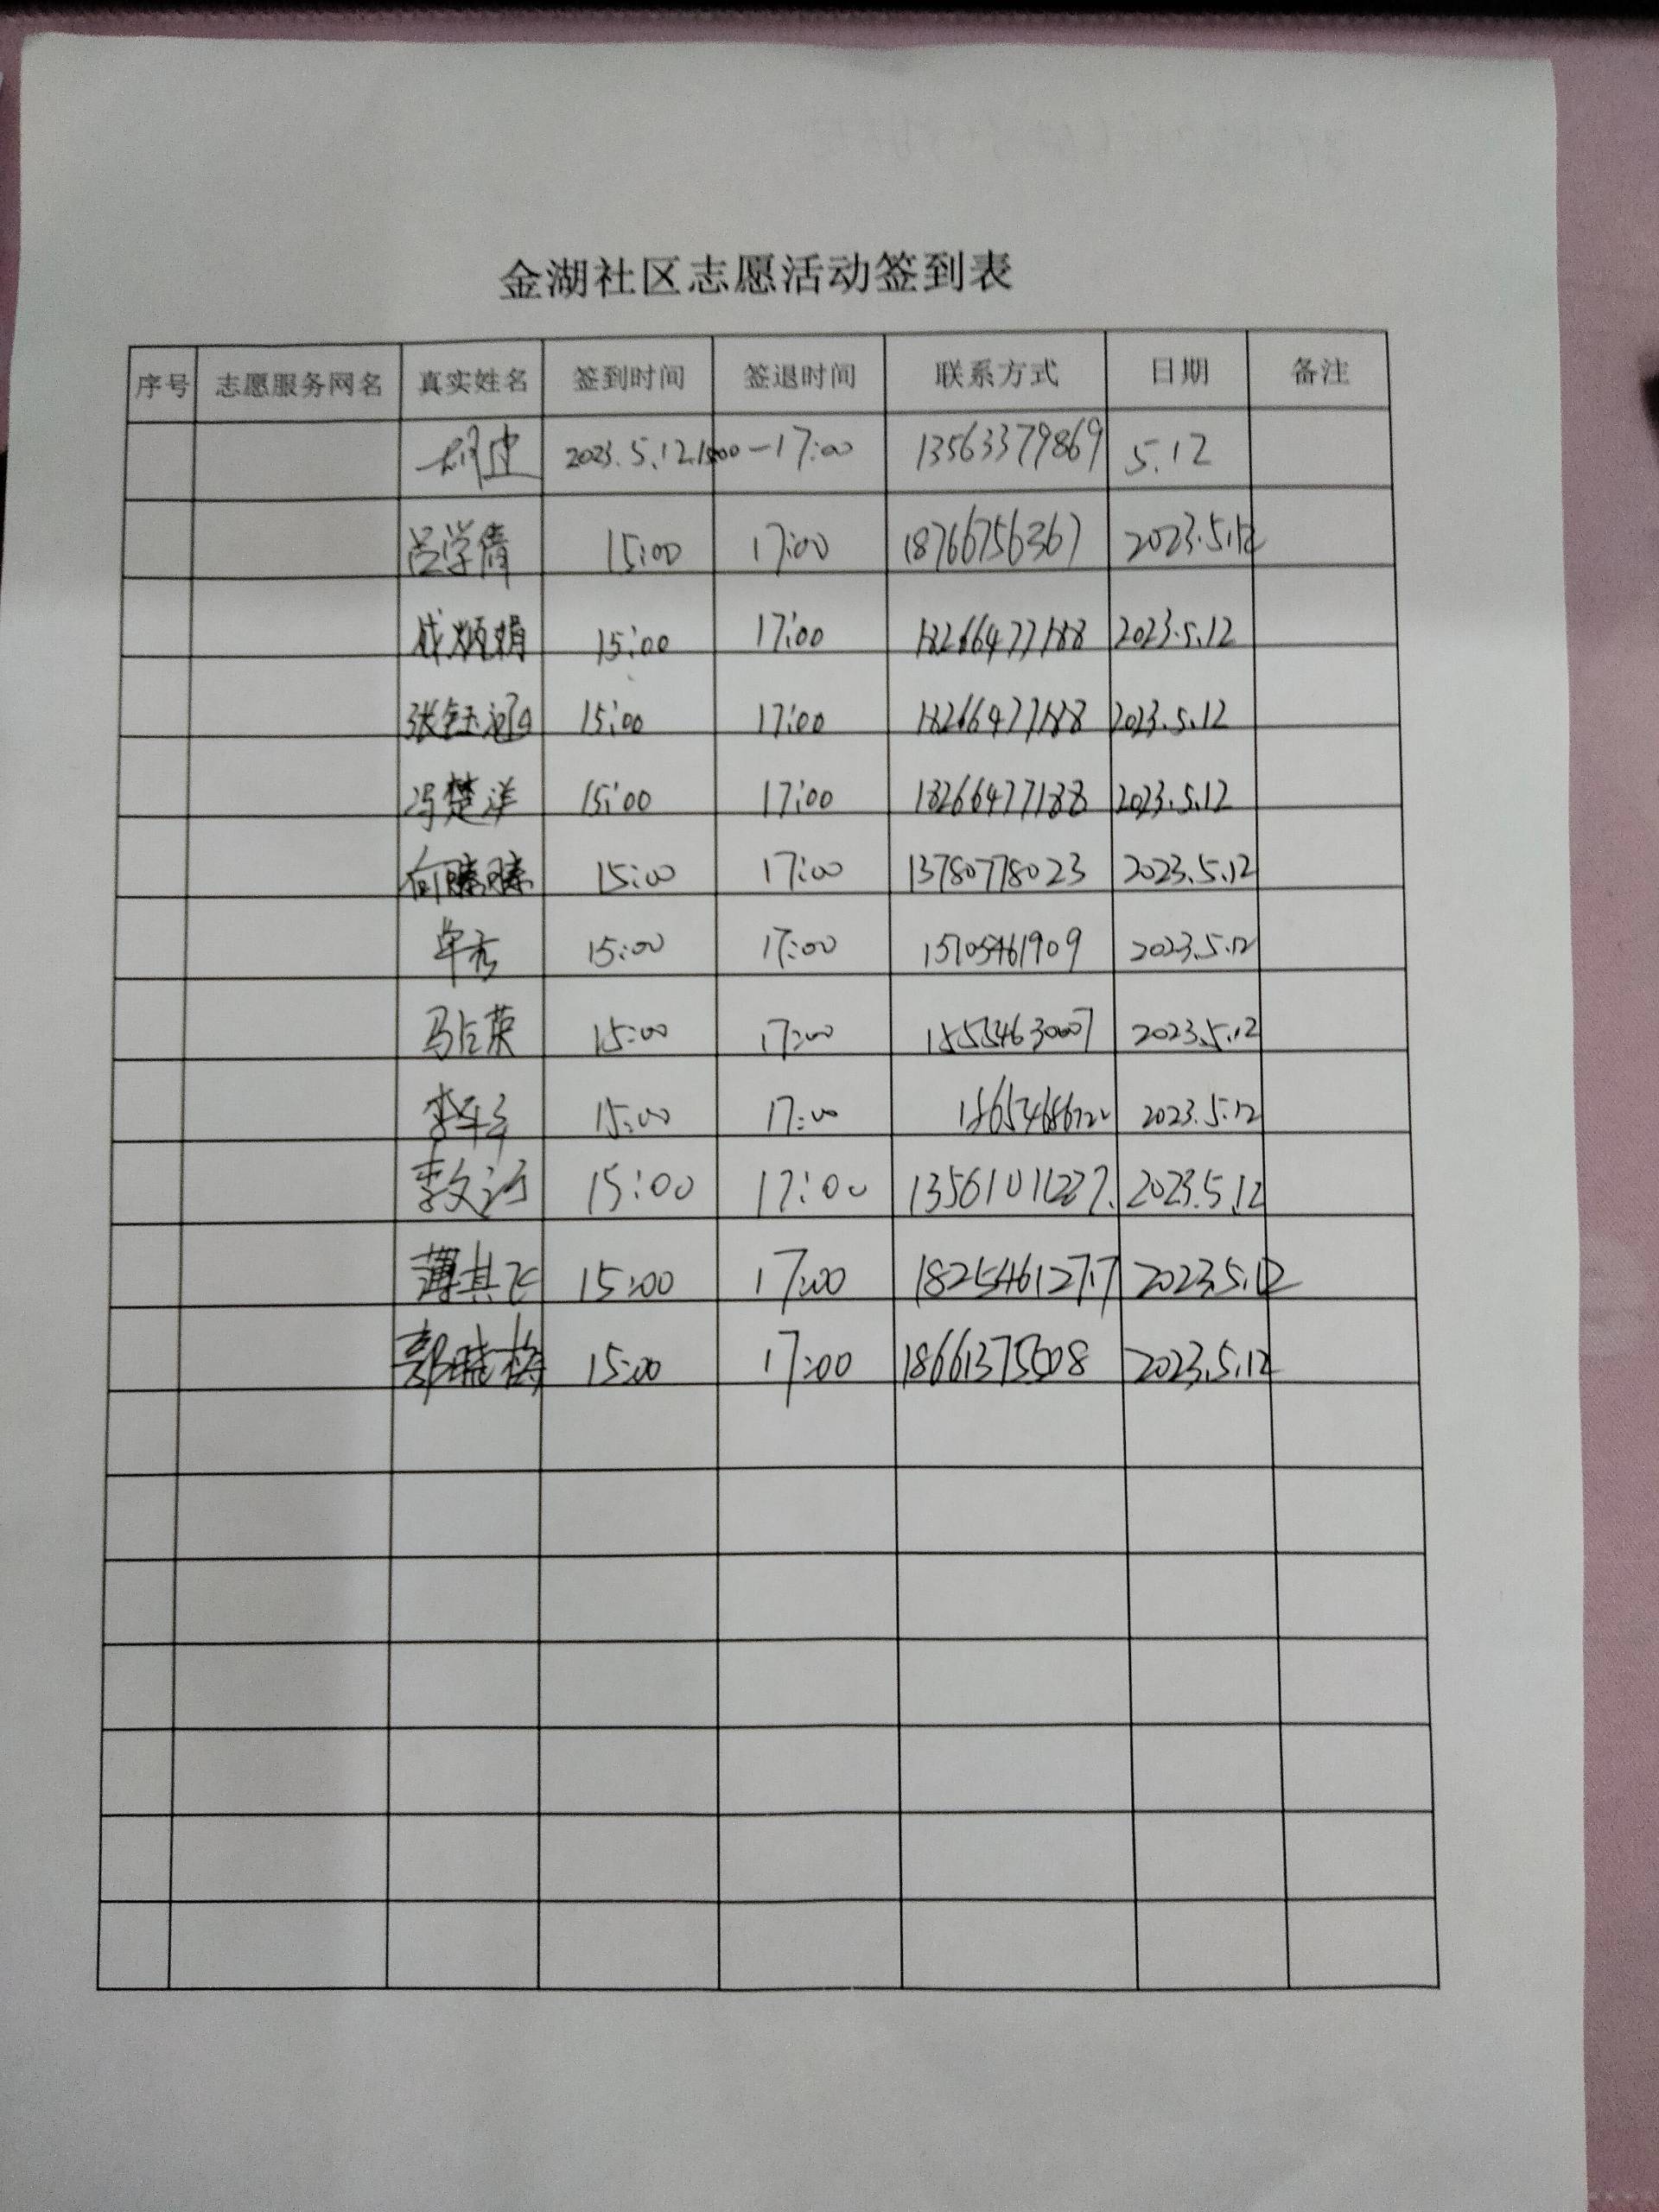 金湖社区志愿活动签到表
序号 志愿服务网名 真实姓名 签到时间 签退时间 联系方式 日期 备注
2023.5.12.15:00-17:00 13563379869 5.12
吕学倩 15:00 17:00 18766756367 2023.5.12
成炳娟 15:00 17:00 18266477188 2023.5.12
张钰涵 15:00 17:00 18266477188 2023.5.12
冯楚洋 15:00 17:00 18266477188 2023.5.12
何臻臻 15:00 17:00 13780778023 2023.5.12
牟秀 15:00 17:00 15705461909 2023.5.12
马占英 15:00 17:00 2023.5.12
15:00 17:00 2023.5.12
李文 15:00 17:00 13561011227. 2023.5.12
薄其飞 15:00 17:00 18254612717 2023.5.12
郭晓梅 15:00 17:00 2023.5.12